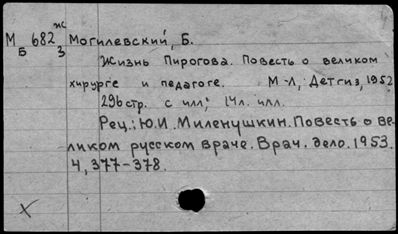 М 682 ж Могилевский, Б.
Б 3
Жизнь Пирогова. Повесть о великом
хирурге и педагоге. М-Л, Детгиз, 1952
296 стр. с илл; 14 л. илл.
Рец.: Ю.И. Миленушкин. Повесть о ве-
ликом русском враче. Врач. дело. 1953.
4, 377-378.